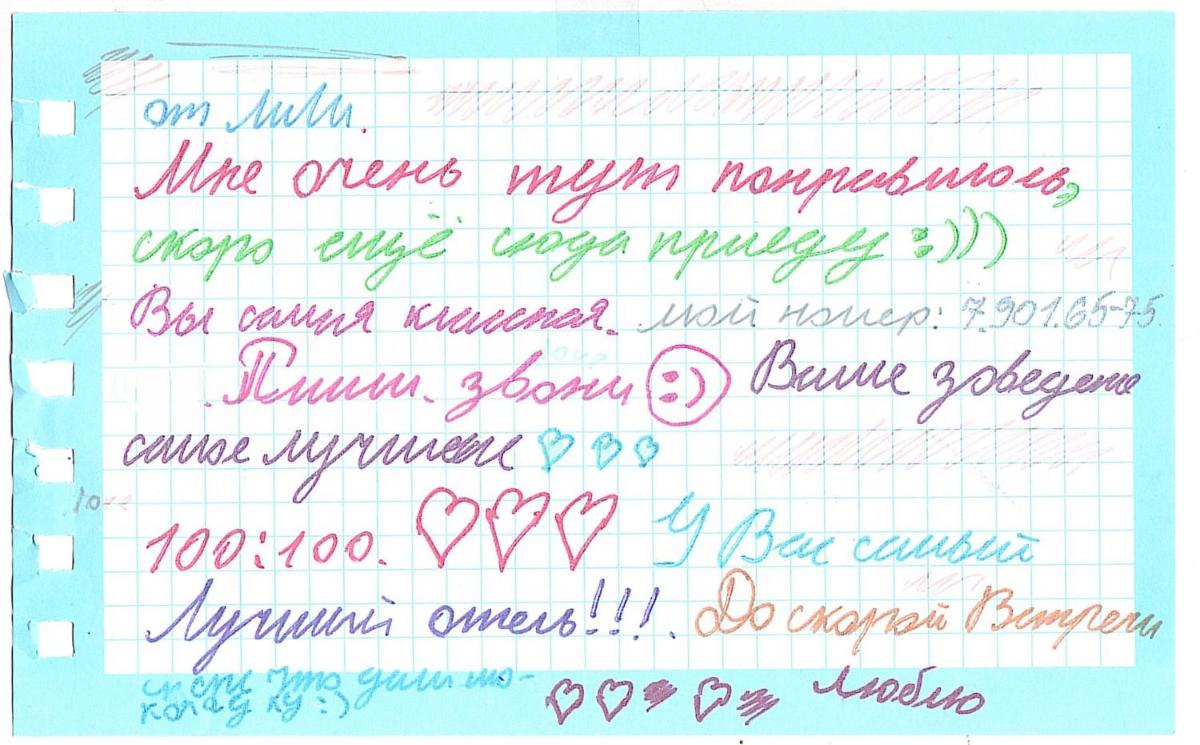 от Лили.
Мне очень тут понравилось,
скоро ещё сюда приеду :)))
Вы самая классная. мой номер: 7.901.65-75
Пиши. звони :) Ваше заведение
самое лучшее
100:100. У Вас самый
Лучший отель!!!. До скорой Встречи
что дали шо-
коладку :) Люблю